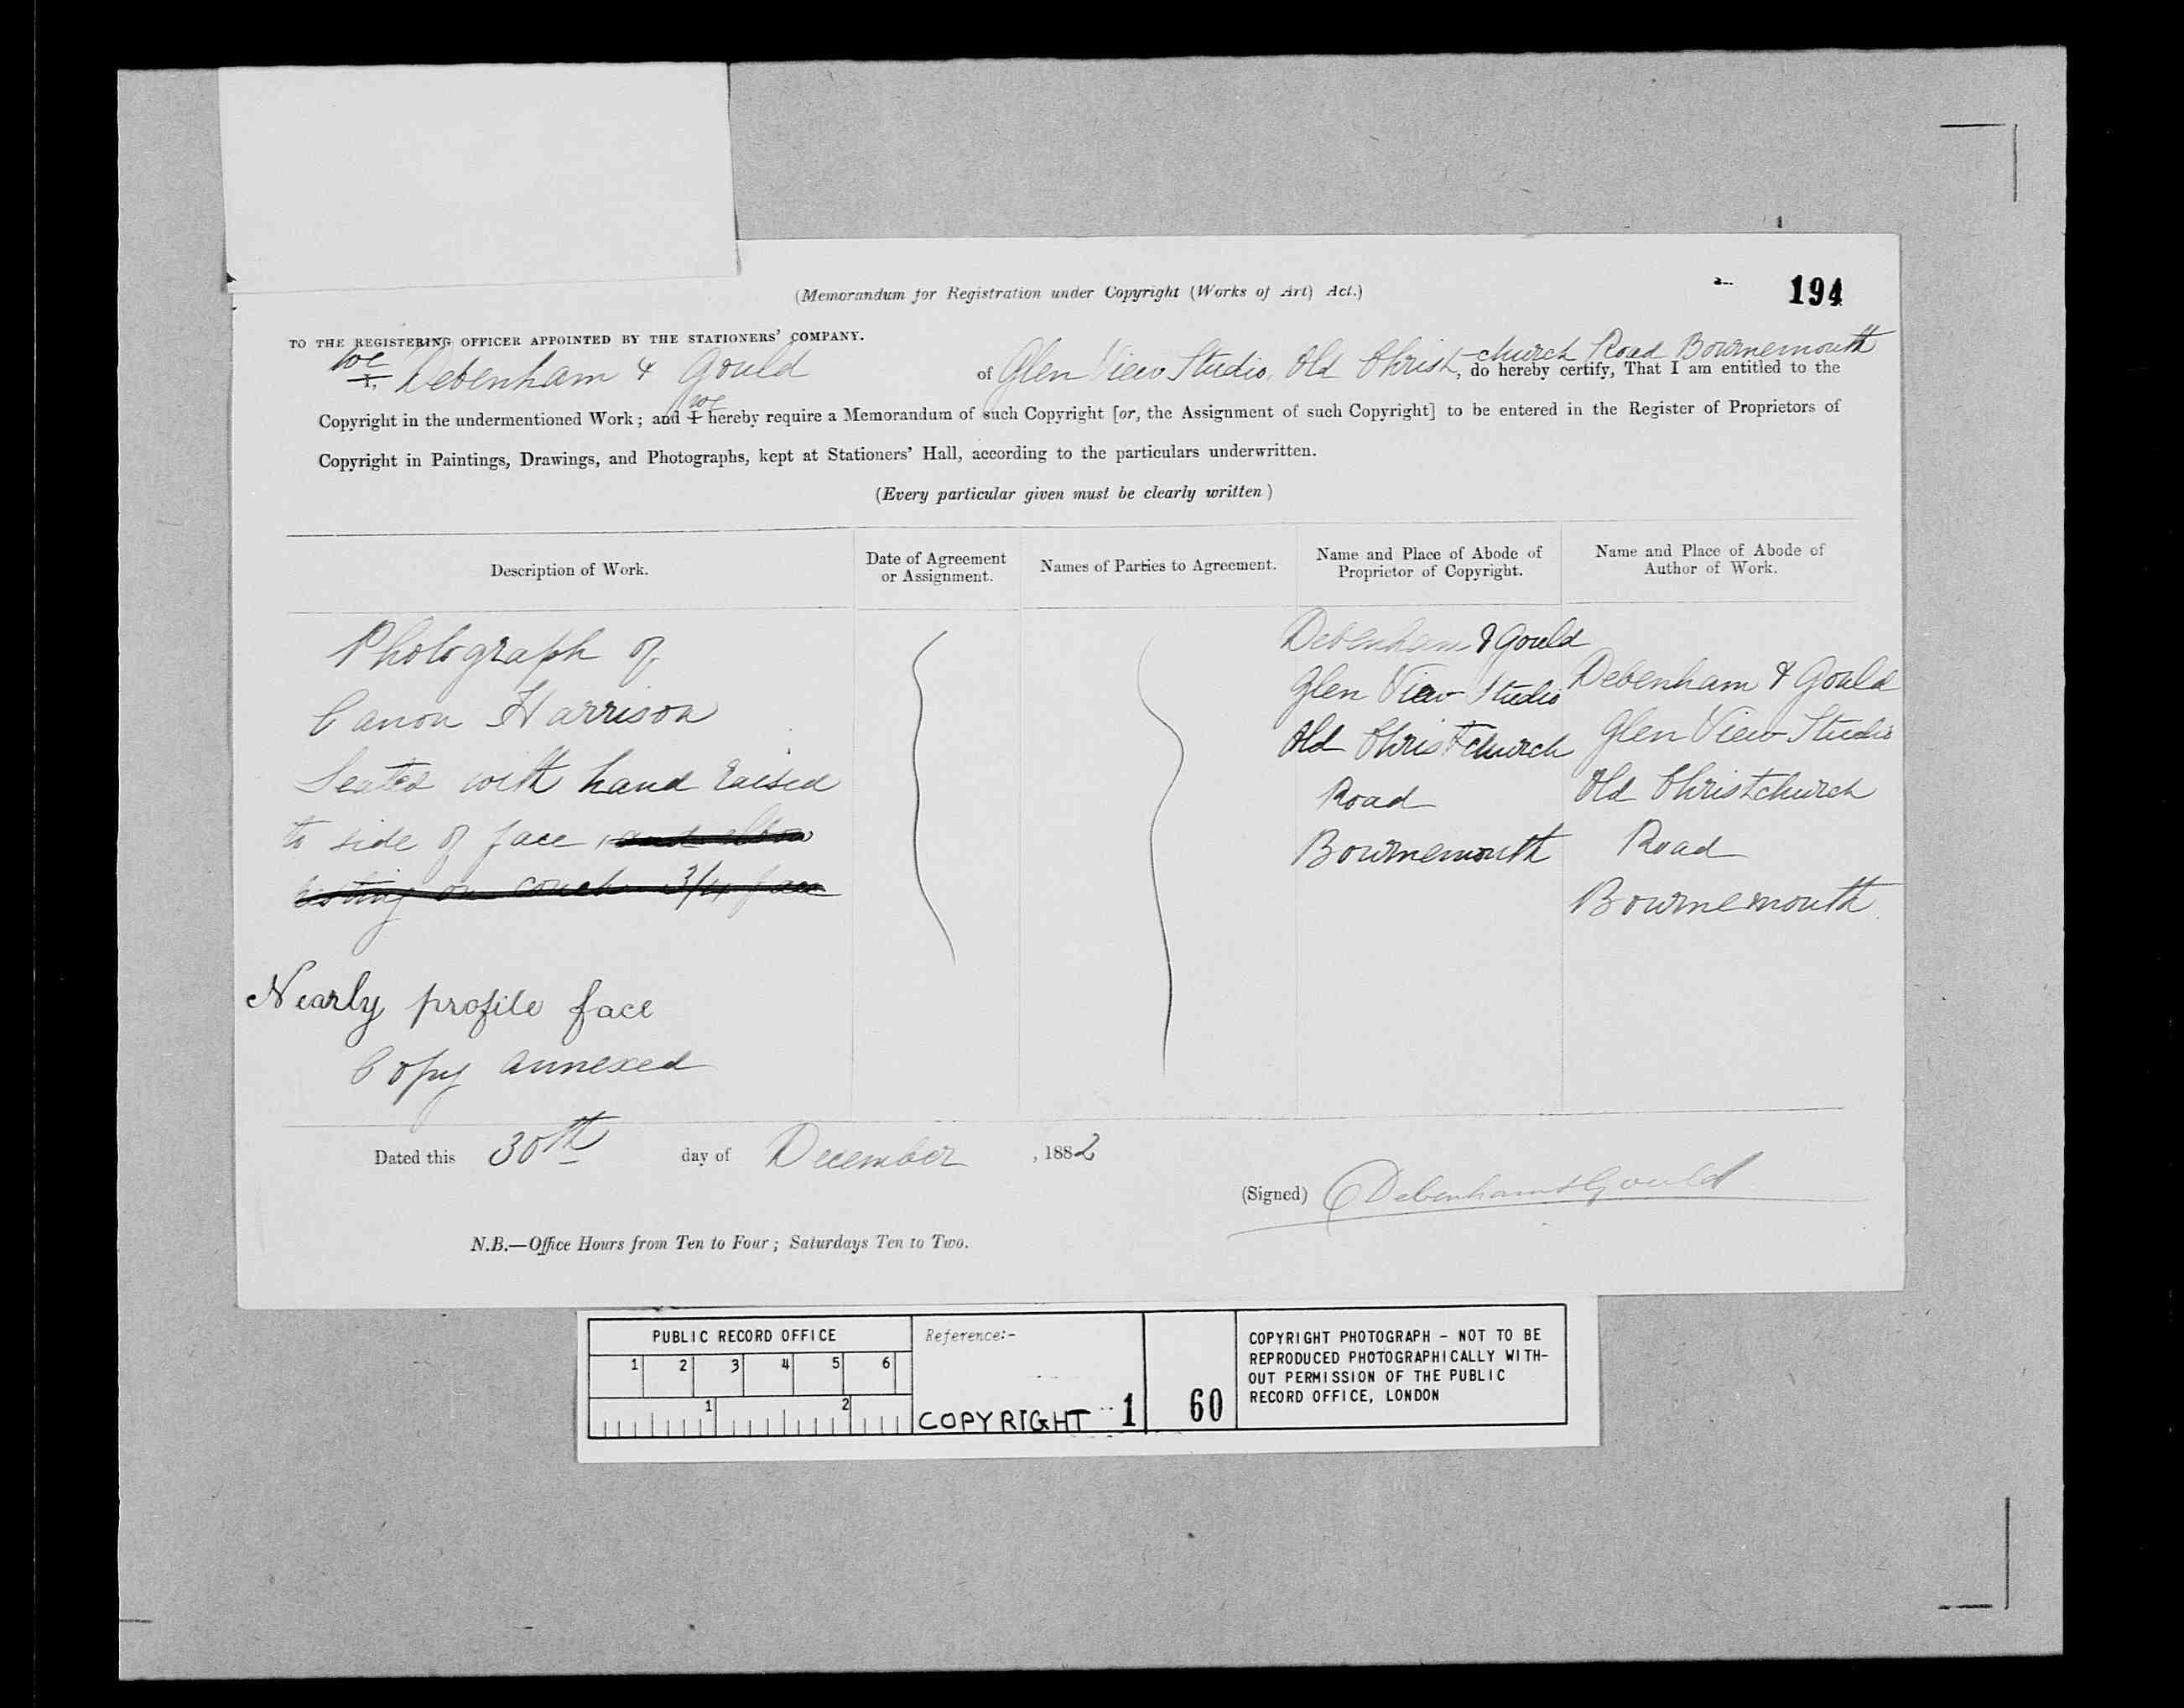 (Memorandum for Registration under Copyright (Works of Art) Act.)
194
TO THE REGISTERING OFFICER APPOINTED BY THE STATIONERS' COMPANY.
We
I, Debenham & Gould of Glen View Studio, Old Christ-church Road Bournemouth, do hereby certify, That I am entitled to the
we
Copyright in the undermentioned Work; and I hereby require a Memorandum of such Copyright [or, the Assignment of such Copyright] to be entered in the Register of Proprietors of
Copyright in Paintings, Drawings, and Photographs, kept at Stationers' Hall, according to the particulars underwritten.
(Every particular given must be clearly written)
Description of Work.
Photograph of
Canon Harrison
Seated with hand raised
to side of face, and elbow
resting on couch 3/4 face
Nearly profile face
Copy annexed
Date of Agreement
or Assignment.
Names of Parties to Agreement.
Name and Place of Abode of
Proprietor of Copyright.
Debenham & Gould
Glen View Studio
Old Christchurch
Road
Bournemouth
Name and Place of Abode of
Author of Work.
Debenham & Gould
Glen View Studio
Old Christchurch
Road
Bournemouth
Dated this 30th day of December, 1882
(Signed) Debenham & Gould
N.B.—Office Hours from Ten to Four; Saturdays Ten to Two.
PUBLIC RECORD OFFICE
1 2 3 4 5 6
1 2
Reference:-
COPYRIGHT 1
60
COPYRIGHT PHOTOGRAPH - NOT TO BE
REPRODUCED PHOTOGRAPHICALLY WITH-
OUT PERMISSION OF THE PUBLIC
RECORD OFFICE, LONDON